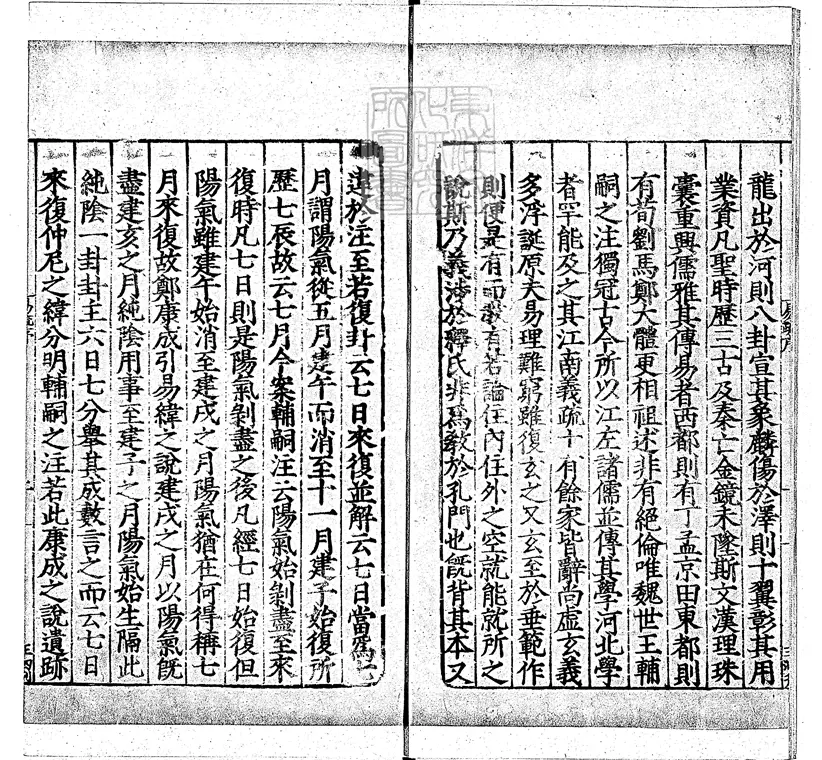 龍出於河則八卦宣其象麟傷於澤則十翼彰其用
業資凡聖時歷三古及秦亡金鏡未墜斯文漢理珠
囊重興儒雅其傳易者西都則有丁孟京田東都則
有荀劉馬鄭大體更相祖述非有絕倫唯魏世王輔
嗣之注獨冠古今所以江左諸儒並傳其學河北學
者罕能及之其江南義疏十有餘家皆辭尚虛玄義
多浮誕原夫易理難窮雖復玄之又玄至於垂範作
則便是有而教有若論住內住外之空就能就所之
說斯乃義涉於釋氏非為教於孔門也旣背其本又
違於注至若復卦云七日來復並解云七日當為七
月謂陽氣從五月建午而消至十一月建子始復所
歷七辰故云七月今案輔嗣注云陽氣始剝盡至來
復時凡七日則是陽氣剝盡之後凡經七日始復但
陽氣雖建午始消至建戌之月陽氣猶在何得稱七
月來復故鄭康成引易緯之說建戌之月以陽氣旣
盡建亥之月純陰用事至建子之月陽氣始生隔此
純陰一卦卦主六日七分舉其成數言之而云七日
來復仲尼之緯分明輔嗣之注若此康成之說遺跡